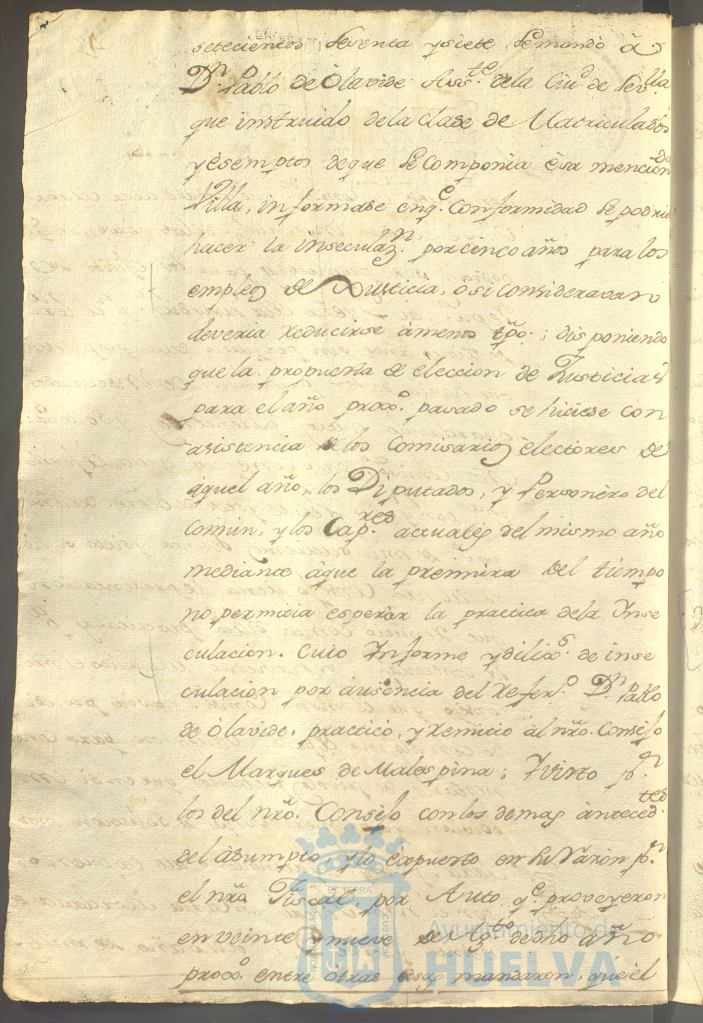 setecientos sesenta y siete, se mando à
Dn. Pablo de Olavide Asste. de la Ciud de Sevlla
que instruido de la clase de Matriculados
y esemptos de que se componia èsa menciondo
Villa, informase en qe. conformidad se podria
hacer la inseculazn. por cinco años para los
empleos de Justicia, ò si consideravan
deveria reducirse à menos tpo.; disponiendo
que la propuesta de eleccion de Justicias
para el año proxo. pasado se hiciese con
asistencia de los Comisarios èlectores de
aquel año, los Diputados, y Personero del
comun, y los Capres. actuales del mismo año
mediante à que la premura del tiempo
no permitia esperar la practica de la Inse
culacion. Cuio Informe y dilixs. de inse
culacion por ausencia del Referdo. Dn. Pablo
de Olavide, practicó, y remitió al nro. Consejo
el Marques de Malespina; Y visto pr.
los del nro. Consejo con los demas àntecedtes
del àsumpto, y lo èxpuesto en su razon pr.
el nro. Fiscal, por Auto qe. proveyeron
en veinte y nueve de Agto. de dho año
proxo. entre otras cosas mandaron, que el
Ayuntamiento de
HUELVA